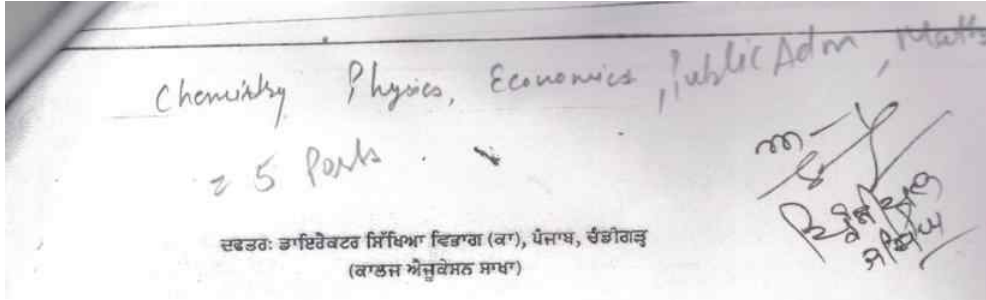 Chemistry Physics, Economics, Public Adm, Maths
= 5 Posts
ਦਫਤਰ: ਡਾਇਰੈਕਟਰ ਸਿੱਖਿਆ ਵਿਭਾਗ (ਕਾ), ਪੰਜਾਬ, ਚੰਡੀਗੜ੍ਹ
(ਕਾਲਜ ਐਜੂਕੇਸ਼ਨ ਸਾਖਾ)